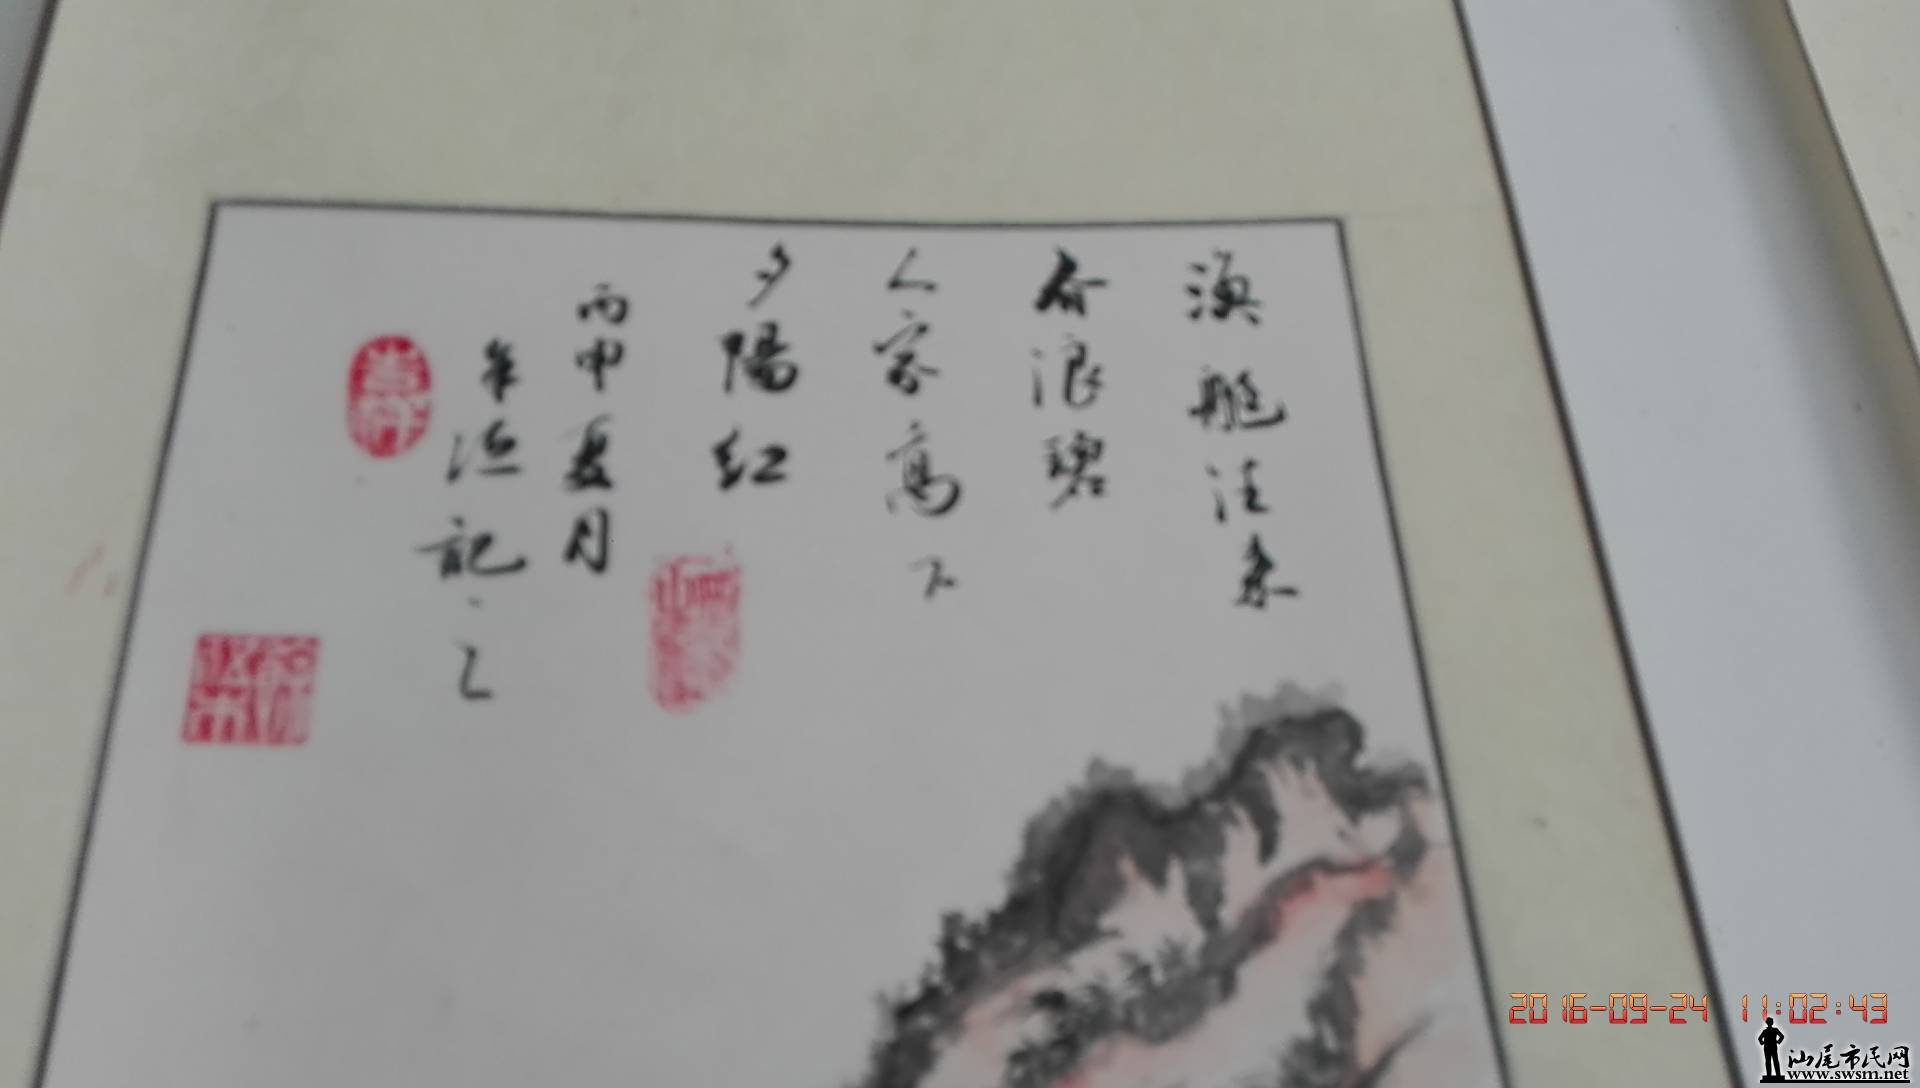 漁艇往来
春浪碧
人家高下
夕陽红
丙申夏月
記之
2016-09-24 11:02:43
汕尾市民网
www.swsm.net